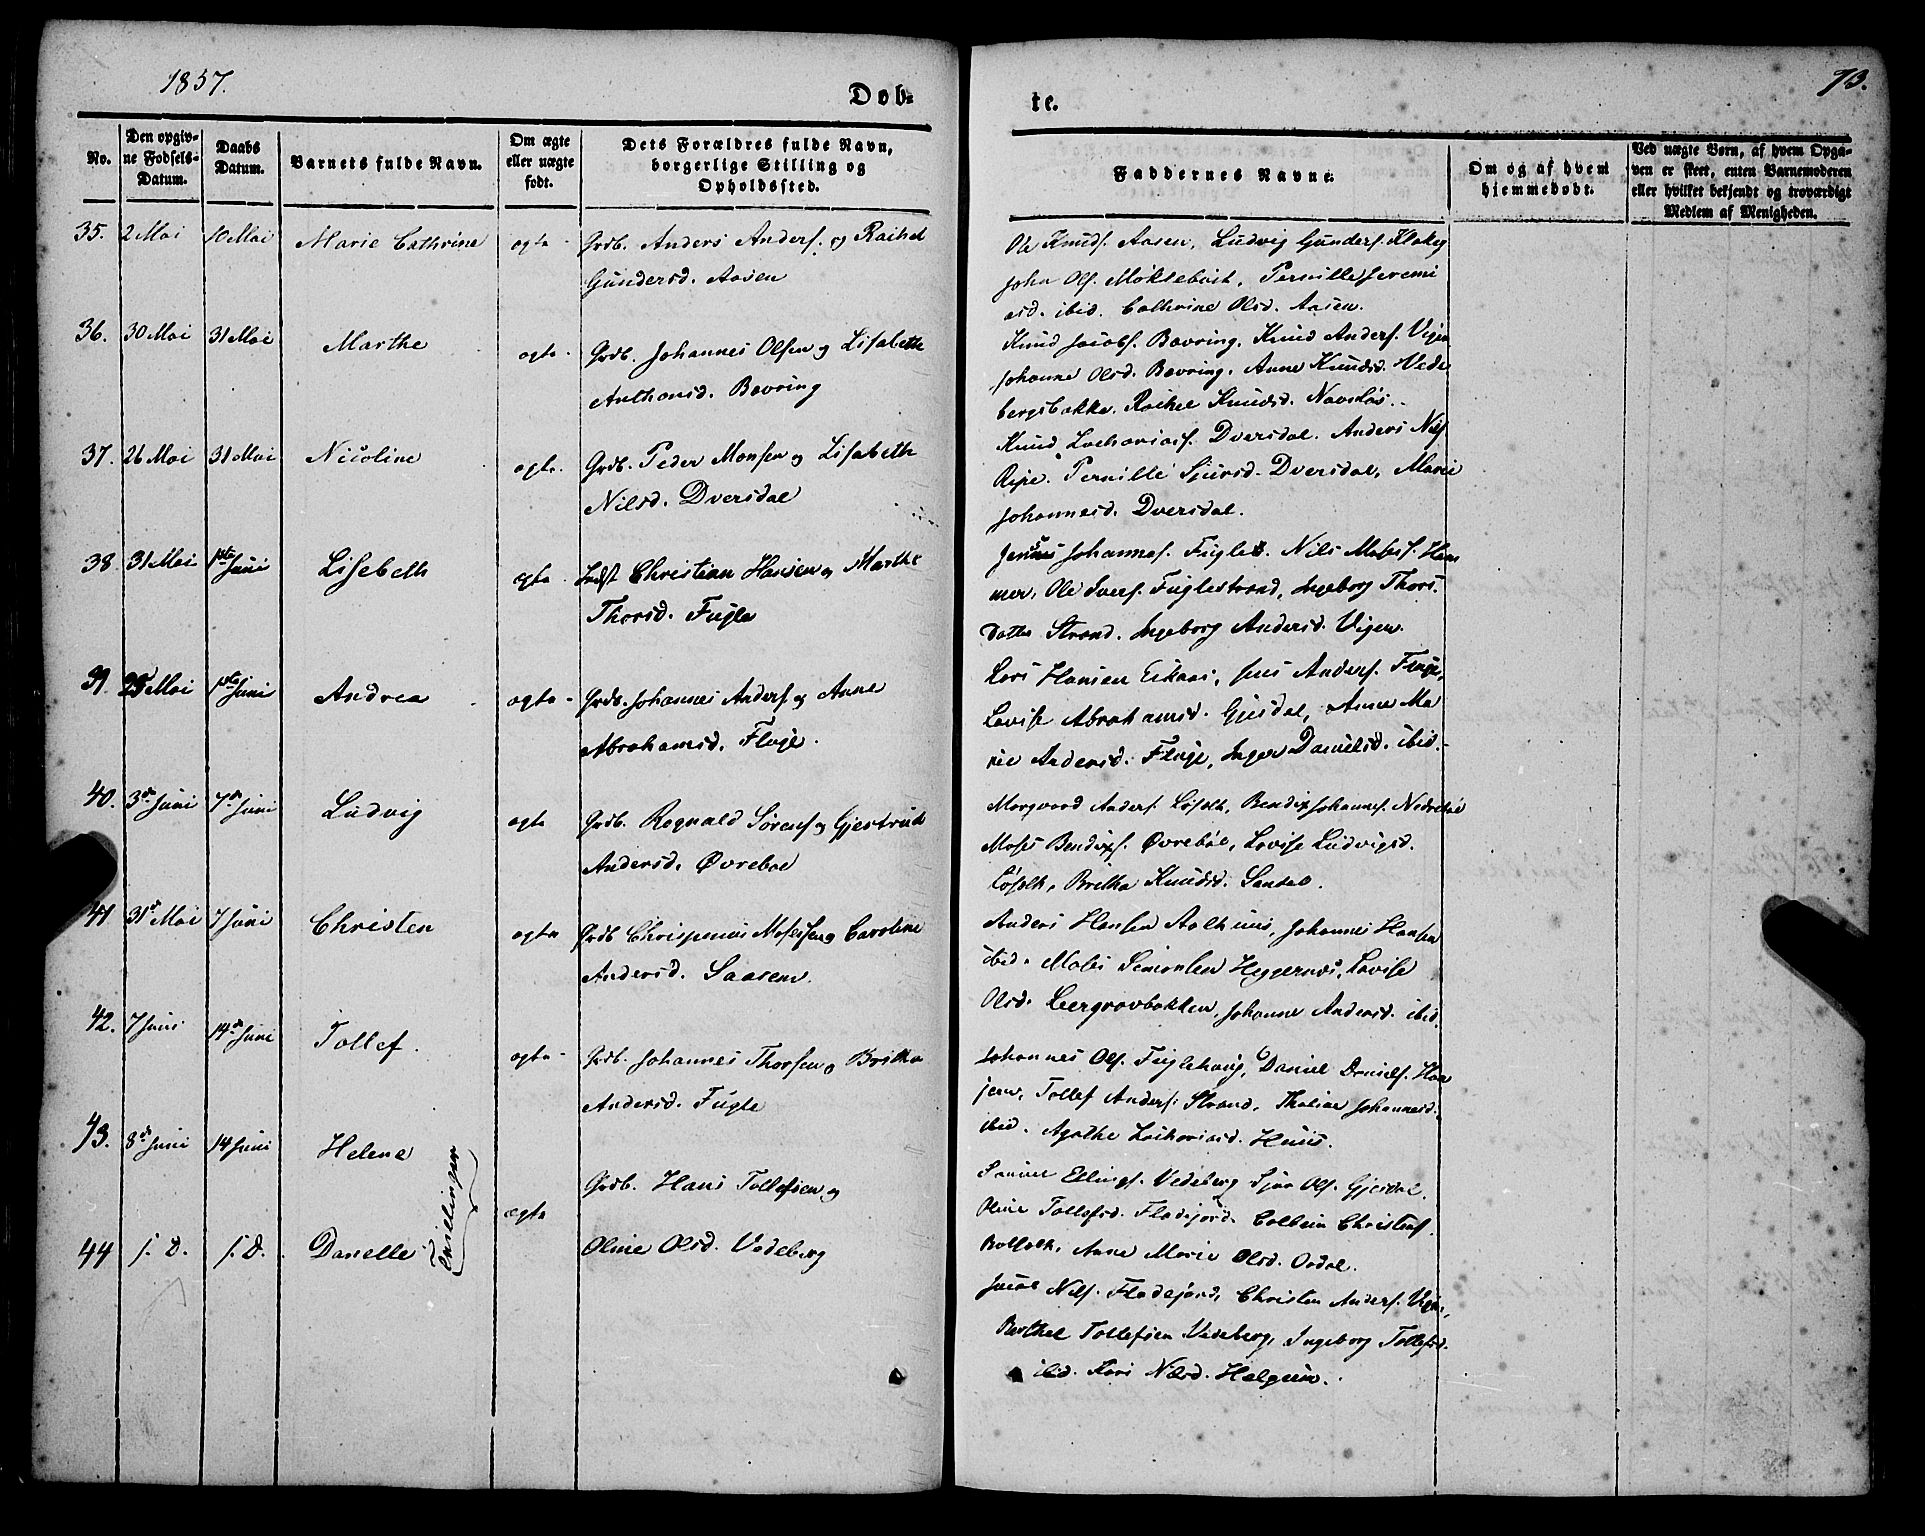 1857.
Døb=
te.
73.
No.
Den opgiv=
ne Fødsels=
Datum.
Daabs
Datum.
Barnets fulde Navn.
Om ægte
eller uægte
født.
Dets Forældres fulde Navn,
borgerlige Stilling og
Opholdssted.
Faddernes Navne.
Om og af hvem
hjemmedøbt.
Ved uægte Børn, af hvem Opga=
ven er skeet, enten Barnemoderen
eller hvilket bekjendt og troværdigt
Medlem af Menigheden.
35. 2 Mai 10 Mai Marie Cathrine ægte Grdb. Anders Anders. og Rachel
Gundersd. Aasen
Ole Knuds. Aasen, Ludvig Gunders. Klakeg
Johan Ols. Møklebust, Pernille Jeremi
asd. ibid. Cathrine Olsd. Aasen.
36. 30 Mai 31 Mai Marthe ægte Grdb. Johannes Olsen og Lisabeth
Anthonsd. Bovring
Knud Jacobs. Bovring, Knud Anders. Vigen
Johanne Olsd. Bovring, Anne Knudsd. Vede
bergsbakke, Rachel Knudsd. Navstøs.
37. 26 Mai 31 Mai Nicoline ægte Grdb. Peder Monsen og Lisabeth
Nilsd. Dversdal
Knud Zachariass. Dversdal, Anders Nils.
Ripe, Pernille Sjursd. Dversdal, Marie
Johannesd. Dversdal.
38. 31 Mai 1ste Juni Lisebeth ægte Indst Christian Hansen og Marthe
Thorsd. Fugle
Johannes. Fugle, Nils Moses. Ham
mer, Ole Ivers. Fuglestrand, Ingeborg Thors
datter Strand, Ingeborg Andersd. Vigen.
39. 25 Mai 1ste Juni Andrea ægte Grdb. Johannes Anders. og Anne
Abrahamsd. Fluge.
Lars Hansen Eikaas, Jens Anders. Fluge,
Lovise Abrahamsd. Gjesdal, Anne Ma
rie Andersd. Fluge, Inger Danielsd. ibid.
40. 3de Juni 7de Juni Ludvig ægte Grdb. Rognald Sørens. og Gjertrud
Andersd. Øvrebøe
Morgvard Anders. Løfolt, Bendix Johannes. Nedrebøe
Moses Bendixs. Øvrebøe, Lovise Ludvigsd.
Løfolt, Brithe Knudsd. Sandal.
41 31te Mai 7 Juni Christen ægte Grdb Chrispinus Mosessen og Caroline
Andersd. Saasen.
Anders Hansen Aalhuus, Johannes Hansen
ibid. Moses Simonsen Heggernæs, Lovise
Olsd. Leergravbakken, Johanne Andersd. ibid.
42. 7 Juni 14de Juni Tollef. ægte Grdb. Johannes Thorsen og Brithe
Andersd. Fugle
Johannes Ols. Fuglehaug, Daniel Daniels. Haa
jem, Tollef Anders. Strand, Johannesd.
ibid. Agathe Zachariasd. Huus.
43. 8de Juni 14 Juni Helene ægte Grdb. Hans Tollefsen og
Ellings. Vedeberg Ols. Gjesdal.
Oline Tollefsd. Fladejord. Colbein Christens.
Bolsæth, Anne Marie Olsd. Ordal.
44 s. D. s. D. Danelle Tvillinger Oline Olsd. Vedeberg
Jacob Nils. Fladejord, Christen Anders. Vigen,
Berthel Tollefsen Vedeberg, Ingeborg Tollefsd.
ibid. Kari Nilsd. Helgeim.